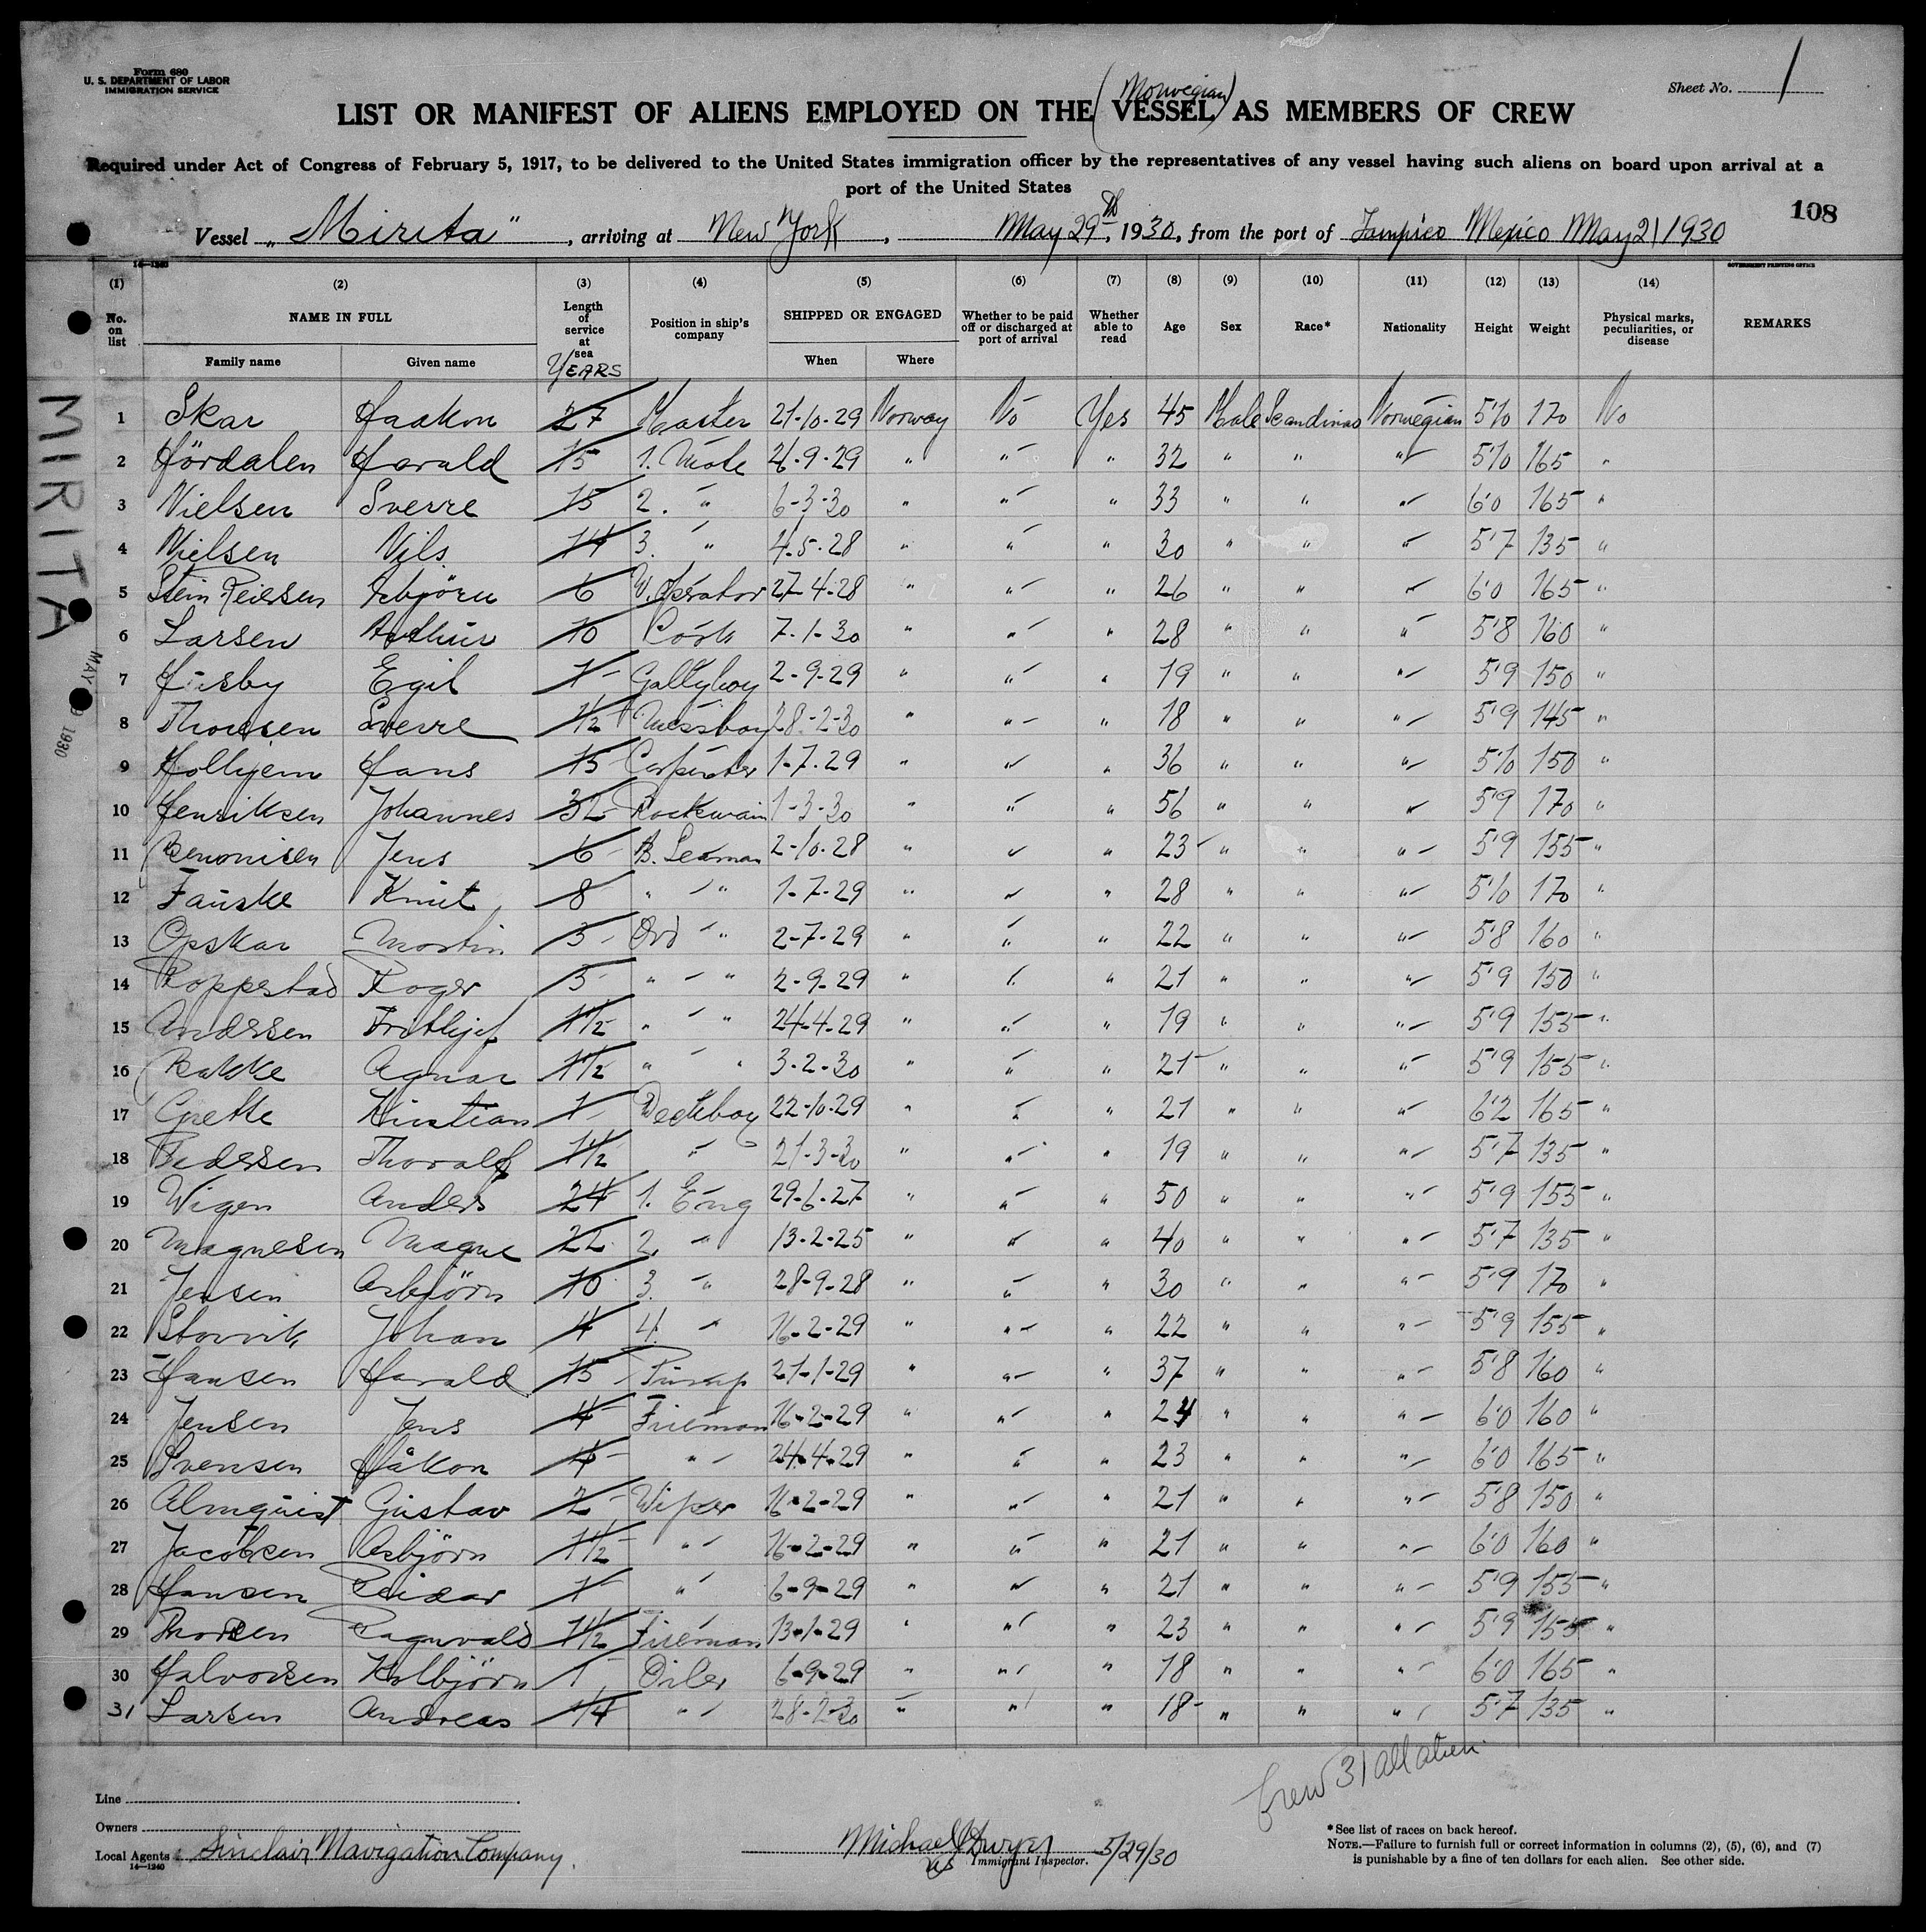 Form 680
U. S. DEPARTMENT OF LABOR
IMMIGRATION SERVICE
Sheet No. 1
(Norwegian)
LIST OR MANIFEST OF ALIENS EMPLOYED ON THE VESSEL AS MEMBERS OF CREW
Required under Act of Congress of February 5, 1917, to be delivered to the United States immigration officer by the representatives of any vessel having such aliens on board upon arrival at a
port of the United States
108
Vessel „Mirita", arriving at New York, May 29th, 1930, from the port of Tampico Mexico May 21 1930
14—1240
GOVERNMENT PRINTING OFFICE
(1) (2) (3) (4) (5) (6) (7) (8) (9) (10) (11) (12) (13) (14)
No. on list NAME IN FULL Length of service at sea YEARS Position in ship's company SHIPPED OR ENGAGED Whether to be paid off or discharged at port of arrival Whether able to read Age Sex Race* Nationality Height Weight Physical marks, peculiarities, or disease REMARKS
Family name Given name When Where
1 Skar Haakon 27 Master 21-10-29 Norway No Yes 45 Male Scandinav Norwegian 5'10 170 No
2 Hördalen Harald 15 1. Mate 21.9.29 " " " 32 " " " 5'10 165 "
3 Nielsen Sverre 15 2. " 6-3-30 " " " 33 " " " 6'0 165 "
4 Nielsen Nils 14 3. " 4.5.28 " " " 30 " " " 5'7 135 "
5 Stein Reiersen Asbjörn 6 W. Operator 27-4-28 " " " 26 " " " 6'0 165 "
6 Larsen Arthur 10 Cook 7.1-30 " " " 28 " " " 5'8 160 "
7 Egil 1 Galleyboy 2-9-29 " " " 19 " " " 5'9 150 "
8 Thomsen Sverre 1/2 Messboy 28-2-30 " " " 18 " " " 5'9 145 "
9 Hollyem Hans 15 Carpenter 1-7.29 " " " 36 " " " 5'10 150 "
10 Henriksen Johannes 32 Bootswain 1-3-30 " " " 56 " " " 5'9 170 "
11 Benonisen Jens 6 A. Seaman 2-10.28 " " " 23 " " " 5'9 155 "
12 Fauske Knut 8 " " 1-7-29 " " " 28 " " " 5'10 170 "
13 Opskar Martin 3 Ord " 2-7-29 " " " 22 " " " 5'8 160 "
14 Roppestad Roger 3 " " 2-9-29 " " " 21 " " " 5'9 150 "
15 Andersen Frithjof 1 1/2 " " 24-4-29 " " " 19 " " " 5'9 155 "
16 Bakke Agnar 1 1/2 " " 3-2-30 " " " 21 " " " 5'9 155 "
17 Grette Kristian 1 Deckboy 22-10-29 " " " 21 " " " 6'2 165 "
18 Pedersen Thoralf 1 1/2 " 21-3-30 " " " 19 " " " 5'7 135 "
19 Wigen Anders 24 1. Eng 29-6-27 " " " 50 " " " 5'9 155 "
20 Magnesen Magne 22 2. " 13-2-25 " " " 40 " " " 5'7 135 "
21 Jensen Asbjörn 10 3. " 28-9-28 " " " 30 " " " 5'9 170 "
22 Storvik Johan 4 4. " 16-2-29 " " " 22 " " " 5'9 155 "
23 Hansen Harald 15 Pump 21-1-29 " " " 37 " " " 5'8 160 "
24 Jensen Jens 4 Fireman 16-2-29 " " " 24 " " " 6'0 160 "
25 Svensen Håkon 4 " 24-4-29 " " " 23 " " " 6'0 165 "
26 Almquist Gustav 2 Wiper 16-2-29 " " " 21 " " " 5'8 150 "
27 Jacobsen Asbjörn 1 1/2 " 16-2-29 " " " 21 " " " 6'0 160 "
28 Hansen Reidar 1 " 6-9-29 " " " 21 " " " 5'9 155 "
29 Thorsen Ragnvald 1 1/2 Fireman 13-1-29 " " " 23 " " " 5'9 155 "
30 Halvorsen Kolbjörn 1 Oiler 6-9-29 " " " 18 " " " 6'0 165 "
31 Larsen Andreas 1/4 " 28-2-30 " " " 18 " " " 5'7 135 "
MIRITA
MAY 1930
Crew 31 all alien
Line
Owners
Local Agents Sinclair Navigation Company.
14—1240
Michael J Dwyer 5/29/30
US Immigrant Inspector.
*See list of races on back hereof.
NOTE.—Failure to furnish full or correct information in columns (2), (5), (6), and (7)
is punishable by a fine of ten dollars for each alien. See other side.